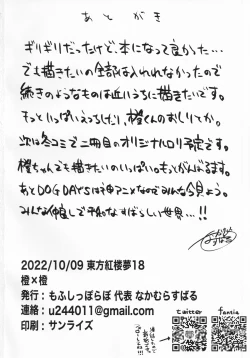 あとがき
ギリギリだったけど、本になって良かった…
でも描きたいの全部は入れれなかったので
続きのようなものは近いうちに描きたいです。
もっといっぱいえっちしたい、橙くんのおしりとか。
次は冬コミで二冊目のオリジナルロリ予定です。
橙ちゃんでも描きたいのいっぱい。もっとがんばるます。
あとDOG DAYSは神アニメなのでみんな今見よう。
みんな仲良しで平和なすばらしい世界…!!
2022/10/09 東方紅楼夢18
橙×橙
発行:もふしっぽらぼ 代表 なかむらすばる
連絡:u244011@gmail.com
印刷:サンライズ
twitter
fantia